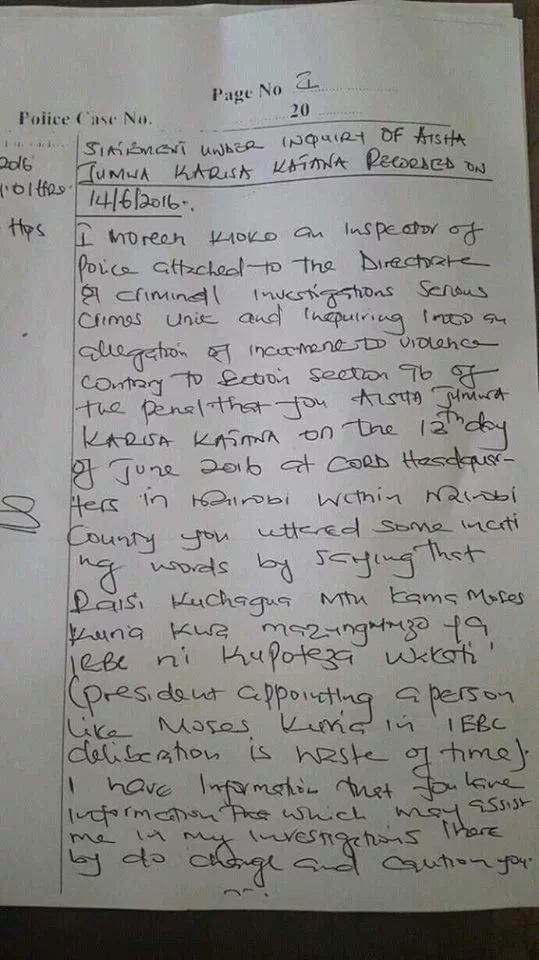 Page No 1
20
Police Case No.
STATEMENT UNDER INQUIRY OF AISHA
JUMWA KARISA KATANA RECORDED ON
14/6/2016.
2016
:01 Hrs.
Hrs
I MOREEN KIOKO an Inspector of
Police attached to the Directorate
of criminall investigations Serious
Crimes Unit and Inquiring Into an
allegation of incitment to violence
contrary to Section Section 96 of
the penal that you AISHA JUMWA
KARISA KATANA on the 12th day
of June 2016 at CORD Headquar-
ters in Nairobi within Nairobi
County you uttered some inciti
ng words by saying that
Raisi Kuchagua Mtu Kama Moses
Kuria Kwa mazungumzo ya
IEBC ni Kupoteza Wakati'
(president appointing a person
like Moses Kuria in IEBC
deliberation is waste of time).
I have Information that you have
Information which may assist
me in my investigations there
by do charge and caution you.